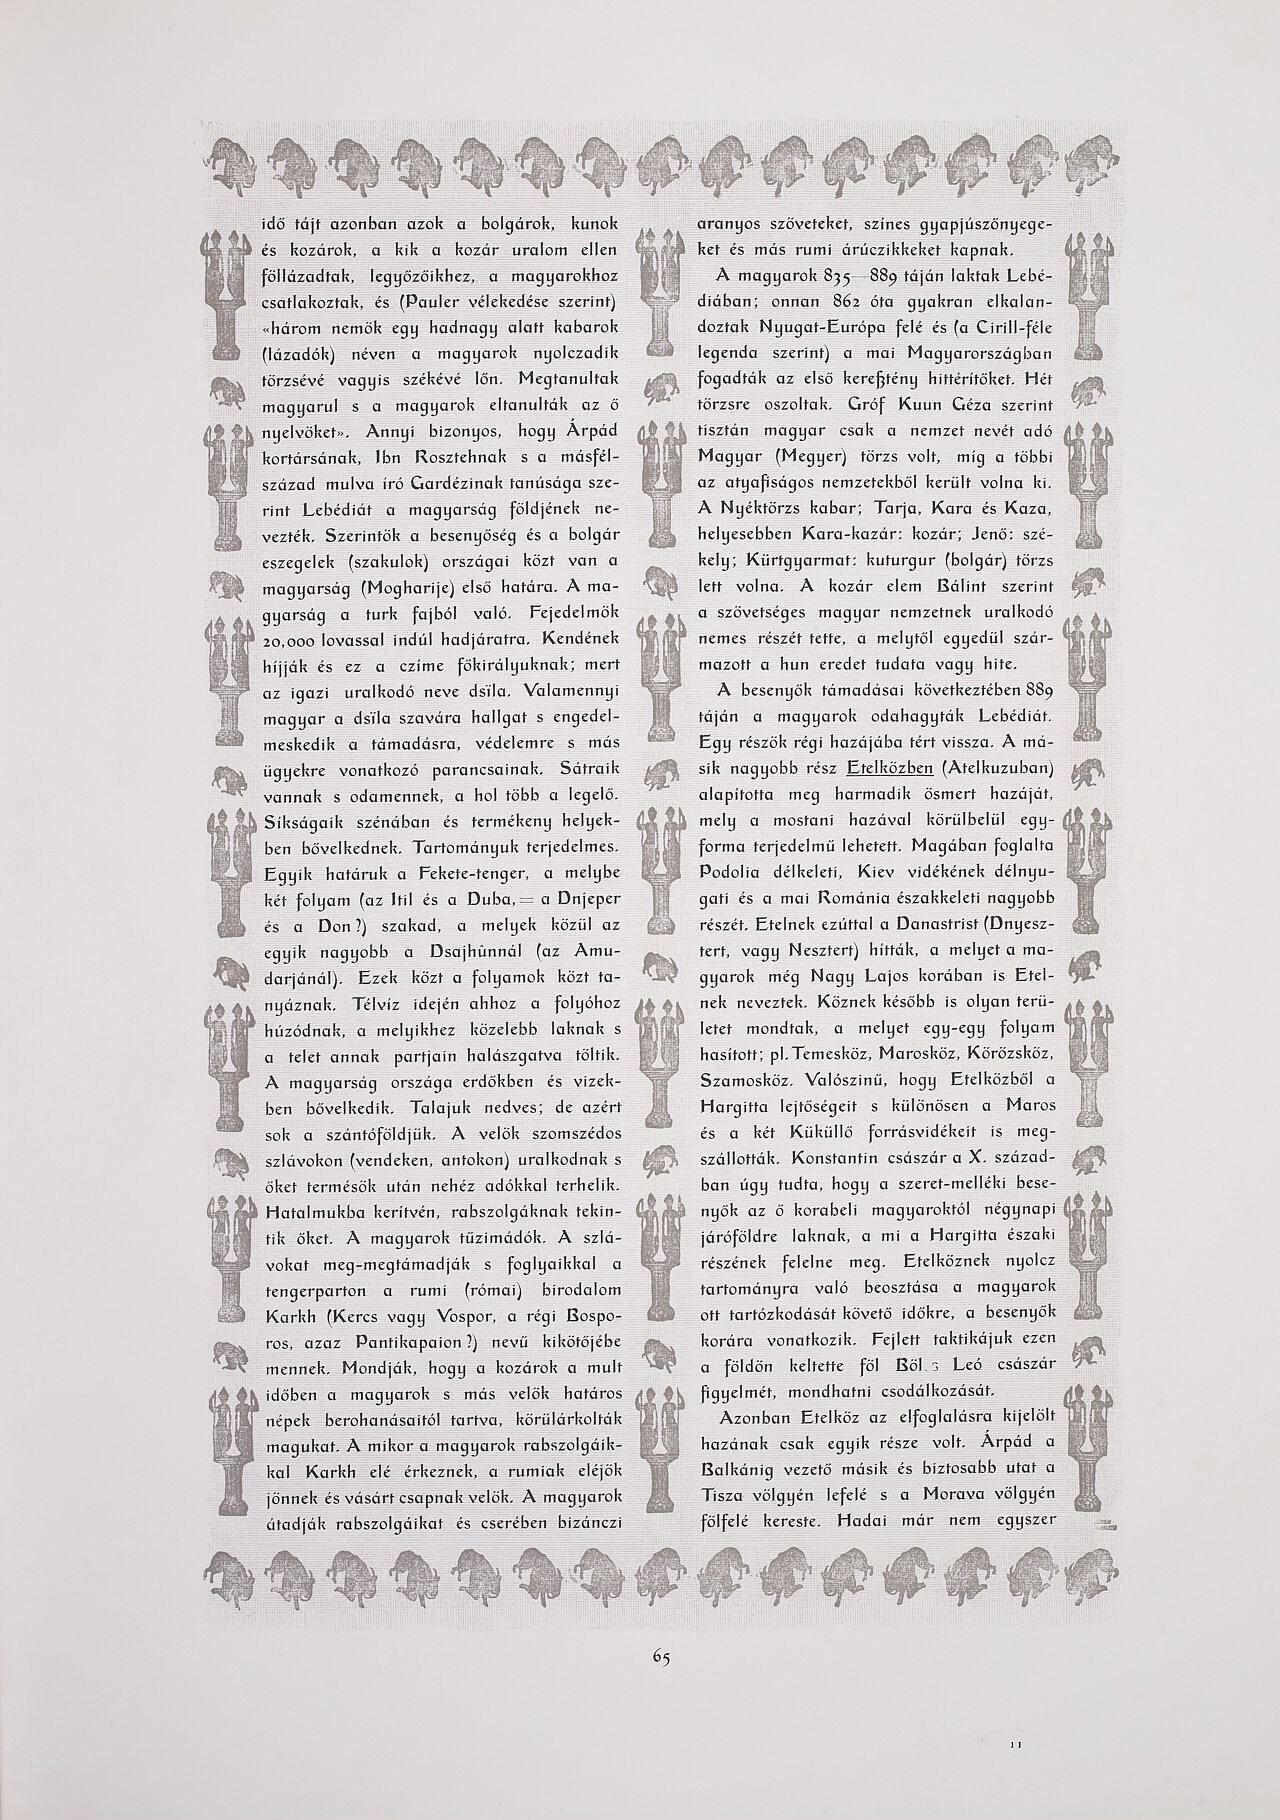 idő tájt azonban azok a bolgárok, kunok
és kozárok, a kik a kozár uralom ellen
föllázadtak, legyőzőikhez, a magyarokhoz
csatlakoztak, és (Pauler vélekedése szerint)
«három nemök egy hadnagy alatt kabarok
(lázadók) néven a magyarok nyolczadik
törzsévé vagyis székévé lőn. Megtanultak
magyarul s a magyarok eltanulták az ő
nyelvöket». Annyi bizonyos, hogy Árpád
kortársának, Ibn Rosztehnak s a másfél-
század mulva író Gardézinak tanúsága sze-
rint Lebédiát a magyarság földjének ne-
vezték. Szerintök a besenyőség és a bolgár
eszegelek (szakulok) országai közt van a
magyarság (Mogharije) első határa. A ma-
gyarság a turk fajból való. Fejedelmök
20,000 lovassal indúl hadjáratra. Kendének
híjják és ez a czíme főkirályuknak; mert
az igazi uralkodó neve dsïla. Valamennyi
magyar a dsïla szavára hallgat s engedel-
meskedik a támadásra, védelemre s más
ügyekre vonatkozó parancsainak. Sátraik
vannak s odamennek, a hol több a legelő.
Síkságaik szénában és termékeny helyek-
ben bővelkednek. Tartományuk terjedelmes.
Egyik határuk a Fekete-tenger, a melybe
két folyam (az Itil és a Duba, = a Dnjeper
és a Don?) szakad, a melyek közül az
egyik nagyobb a Dsajhûnnál (az Amu-
darjánál). Ezek közt a folyamok közt ta-
nyáznak. Télvíz idején ahhoz a folyóhoz
húzódnak, a melyikhez közelebb laknak s
a telet annak partjain halászgatva töltik.
A magyarság országa erdőkben és vizek-
ben bővelkedik. Talajuk nedves; de azért
sok a szántóföldjük. A velök szomszédos
szlávokon (vendeken, antokon) uralkodnak s
őket termésök után nehéz adókkal terhelik.
Hatalmukba kerítvén, rabszolgáknak tekin-
tik őket. A magyarok tűzimádók. A szlá-
vokat meg-megtámadják s foglyaikkal a
tengerparton a rumi (római) birodalom
Karkh (Kercs vagy Vospor, a régi Bospo-
ros, azaz Pantikapaion?) nevű kikötőjébe
mennek. Mondják, hogy a kozárok a mult
időben a magyarok s más velök határos
népek berohanásaitól tartva, körülárkolták
magukat. A mikor a magyarok rabszolgáik-
kal Karkh elé érkeznek, a rumiak eléjök
jönnek és vásárt csapnak velök. A magyarok
átadják rabszolgáikat és cserében bizánczi
aranyos szöveteket, színes gyapjúszőnyege-
ket és más rumi árúczikkeket kapnak.
A magyarok 835—889 táján laktak Lebé-
diában; onnan 862 óta gyakran elkalan-
doztak Nyugat-Európa felé és (a Cirill-féle
legenda szerint) a mai Magyarországban
fogadták az első kereßtény hittérítőket. Hét
törzsre oszoltak. Gróf Kuun Géza szerint
tisztán magyar csak a nemzet nevét adó
Magyar (Megyer) törzs volt, míg a többi
az atyafiságos nemzetekből került volna ki.
A Nyéktörzs kabar; Tarja, Kara és Kaza,
helyesebben Kara-kazár: kozár; Jenő: szé-
kely; Kürtgyarmat: kuturgur (bolgár) törzs
lett volna. A kozár elem Bálint szerint
a szövetséges magyar nemzetnek uralkodó
nemes részét tette, a melytől egyedül szár-
mazott a hun eredet tudata vagy hite.
A besenyők támadásai következtében 889
táján a magyarok odahagyták Lebédiát.
Egy részök régi hazájába tért vissza. A má-
sik nagyobb rész Etelközben (Atelkuzuban)
alapította meg harmadik ösmert hazáját,
mely a mostani hazával körülbelül egy-
forma terjedelmű lehetett. Magában foglalta
Podolia délkeleti, Kiev vidékének délnyu-
gati és a mai Románia északkeleti nagyobb
részét. Etelnek ezúttal a Danastrist (Dnyesz-
tert, vagy Nesztert) hítták, a melyet a ma-
gyarok még Nagy Lajos korában is Etel-
nek neveztek. Köznek később is olyan terü-
letet mondtak, a melyet egy-egy folyam
hasított; pl. Temesköz, Marosköz, Körözsköz,
Szamosköz. Valószinű, hogy Etelközből a
Hargitta lejtőségeit s különösen a Maros
és a két Küküllő forrásvidékeit is meg-
szállották. Konstantin császár a X. század-
ban úgy tudta, hogy a szeret-melléki bese-
nyők az ő korabeli magyaroktól négynapi
járóföldre laknak, a mi a Hargitta északi
részének felelne meg. Etelköznek nyolcz
tartományra való beosztása a magyarok
ott tartózkodását követő időkre, a besenyők
korára vonatkozik. Fejlett taktikájuk ezen
a földön keltette föl Böl Leó császár
figyelmét, mondhatni csodálkozását.
Azonban Etelköz az elfoglalásra kijelölt
hazának csak egyik része volt. Árpád a
Balkánig vezető másik és biztosabb utat a
Tisza völgyén lefelé s a Morava völgyén
fölfelé kereste. Hadai már nem egyszer
65
11